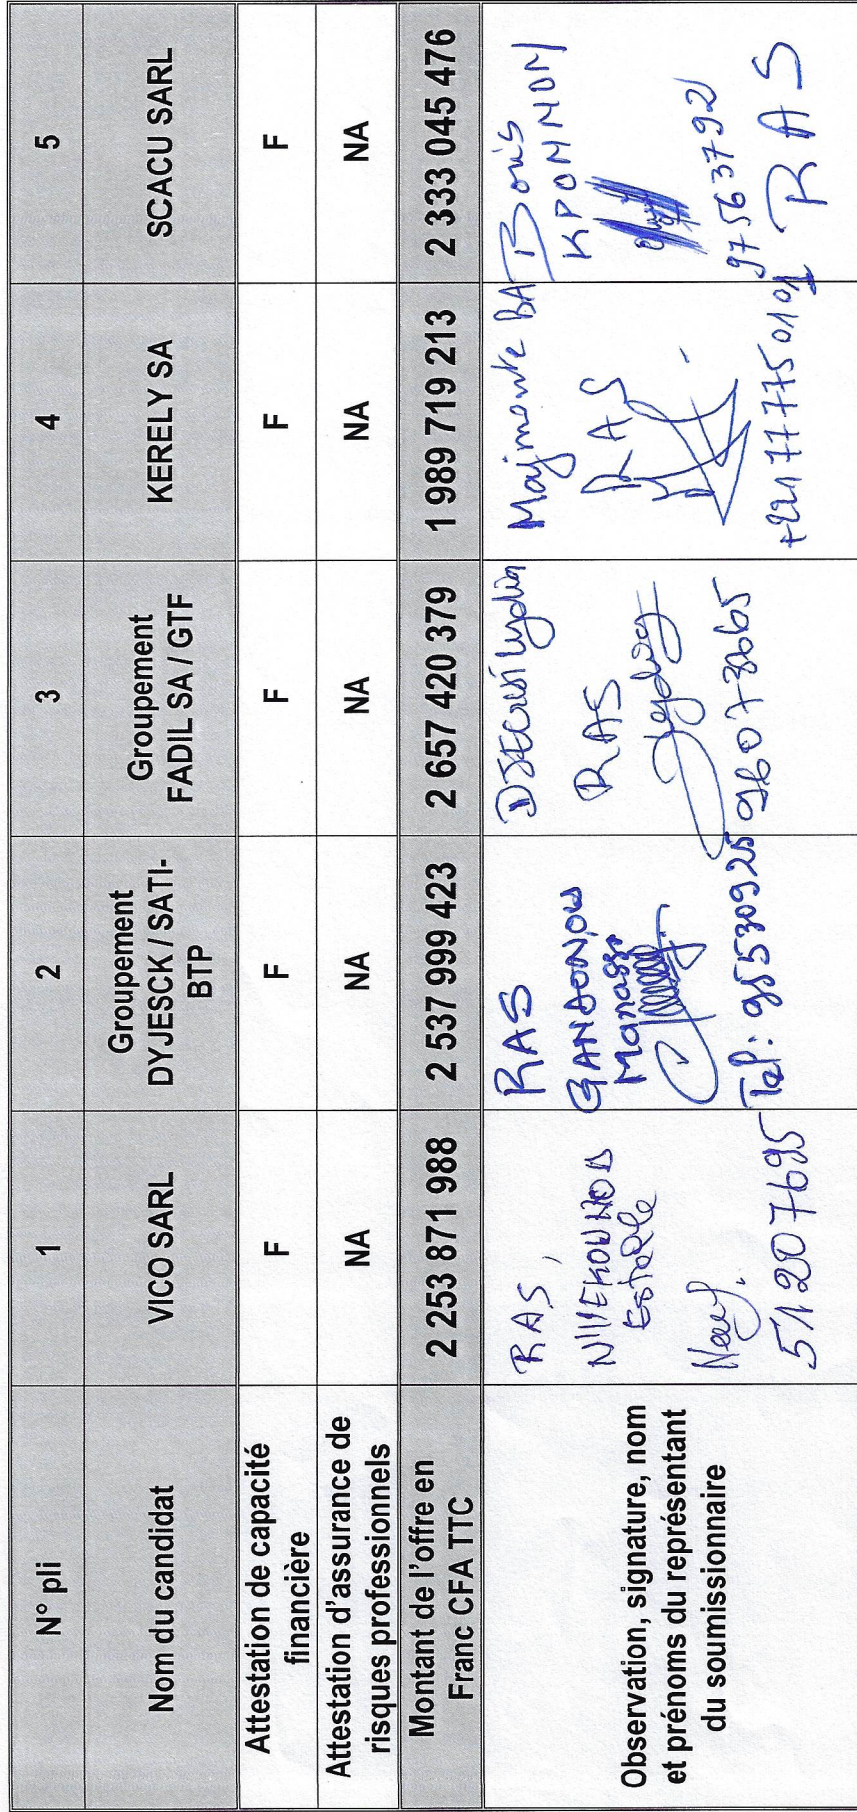 N° pli
1
2
3
4
5
Nom du candidat
VICO SARL
Groupement
DYJESCK / SATI-
BTP
Groupement
FADIL SA / GTF
KERELY SA
SCACU SARL
Attestation de capacité
financière
F
F
F
F
F
Attestation d'assurance de
risques professionnels
NA
NA
NA
NA
NA
Montant de l'offre en
Franc CFA TTC
2 253 871 988
2 537 999 423
2 657 420 379
1 989 719 213
2 333 045 476
Observation, signature, nom
et prénoms du représentant
du soumissionnaire
RAS,
Estelle
51207695
RAS
GANDONOU
Manassé
Tél: 95530925
Lydia
RAS
96073665
Majmonte BA
RAS
+221777750101
Boris
KPOMNON
97563792
RAS